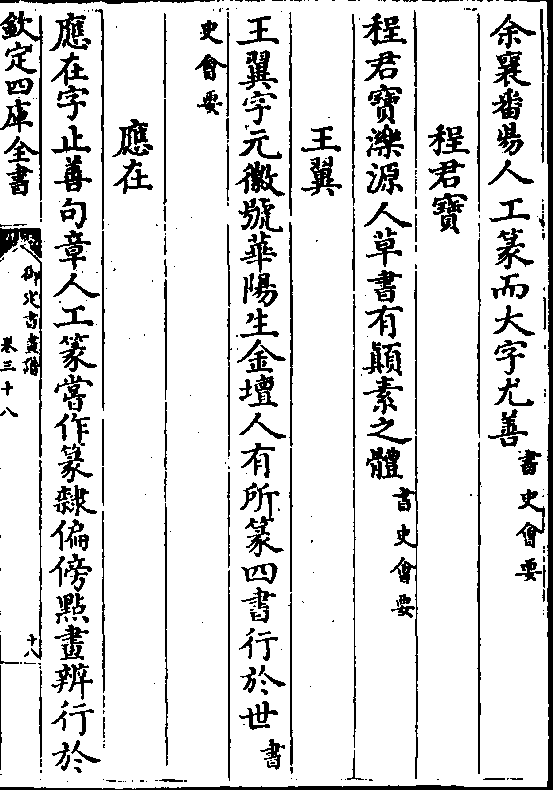 余襄番昜人工篆而大字尤善書史會要
程君寶
程君寶濼源人草書有顛素之體書史會要
王翼
王翼字元徽號華陽生金壇人有所篆四書行於世書
史會要
應在
應在字止善句章人工篆嘗作篆隸偏傍點畫辨行於
欽定四庫全書
御定書畫譜
卷三十八
十八